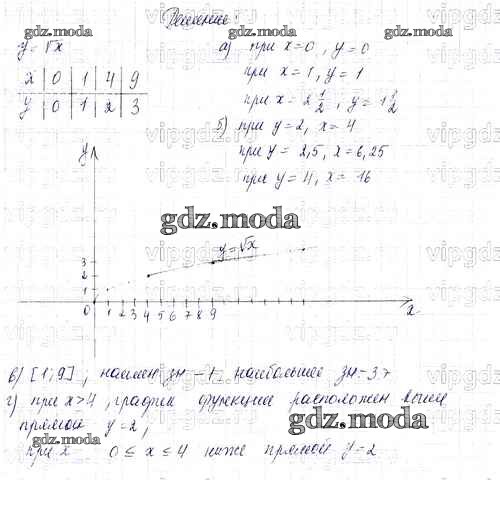 Решение:
y = √x
x | 0 | 1 | 4 | 9
y | 0 | 1 | 2 | 3
а) при x=0, y=0
при x=1, y=1
при x=2 1/2, y=1 1/2
б) при y=2, x=4
при y = 2,5, x=6,25
при y=4, x= 16
y
3
2
1
0 1 2 3 4 5 6 7 8 9
x
y=√x
в) [1;9]; наимен зн - 1, наибольшее зн=3.
г) при x>4, график функции расположен выше
прямой y=2,
при x 0 ≤ x ≤ 4 ниже прямой y=2
gdz.moda
gdz.moda
gdz.moda
gdz.moda
gdz.moda
gdz.moda